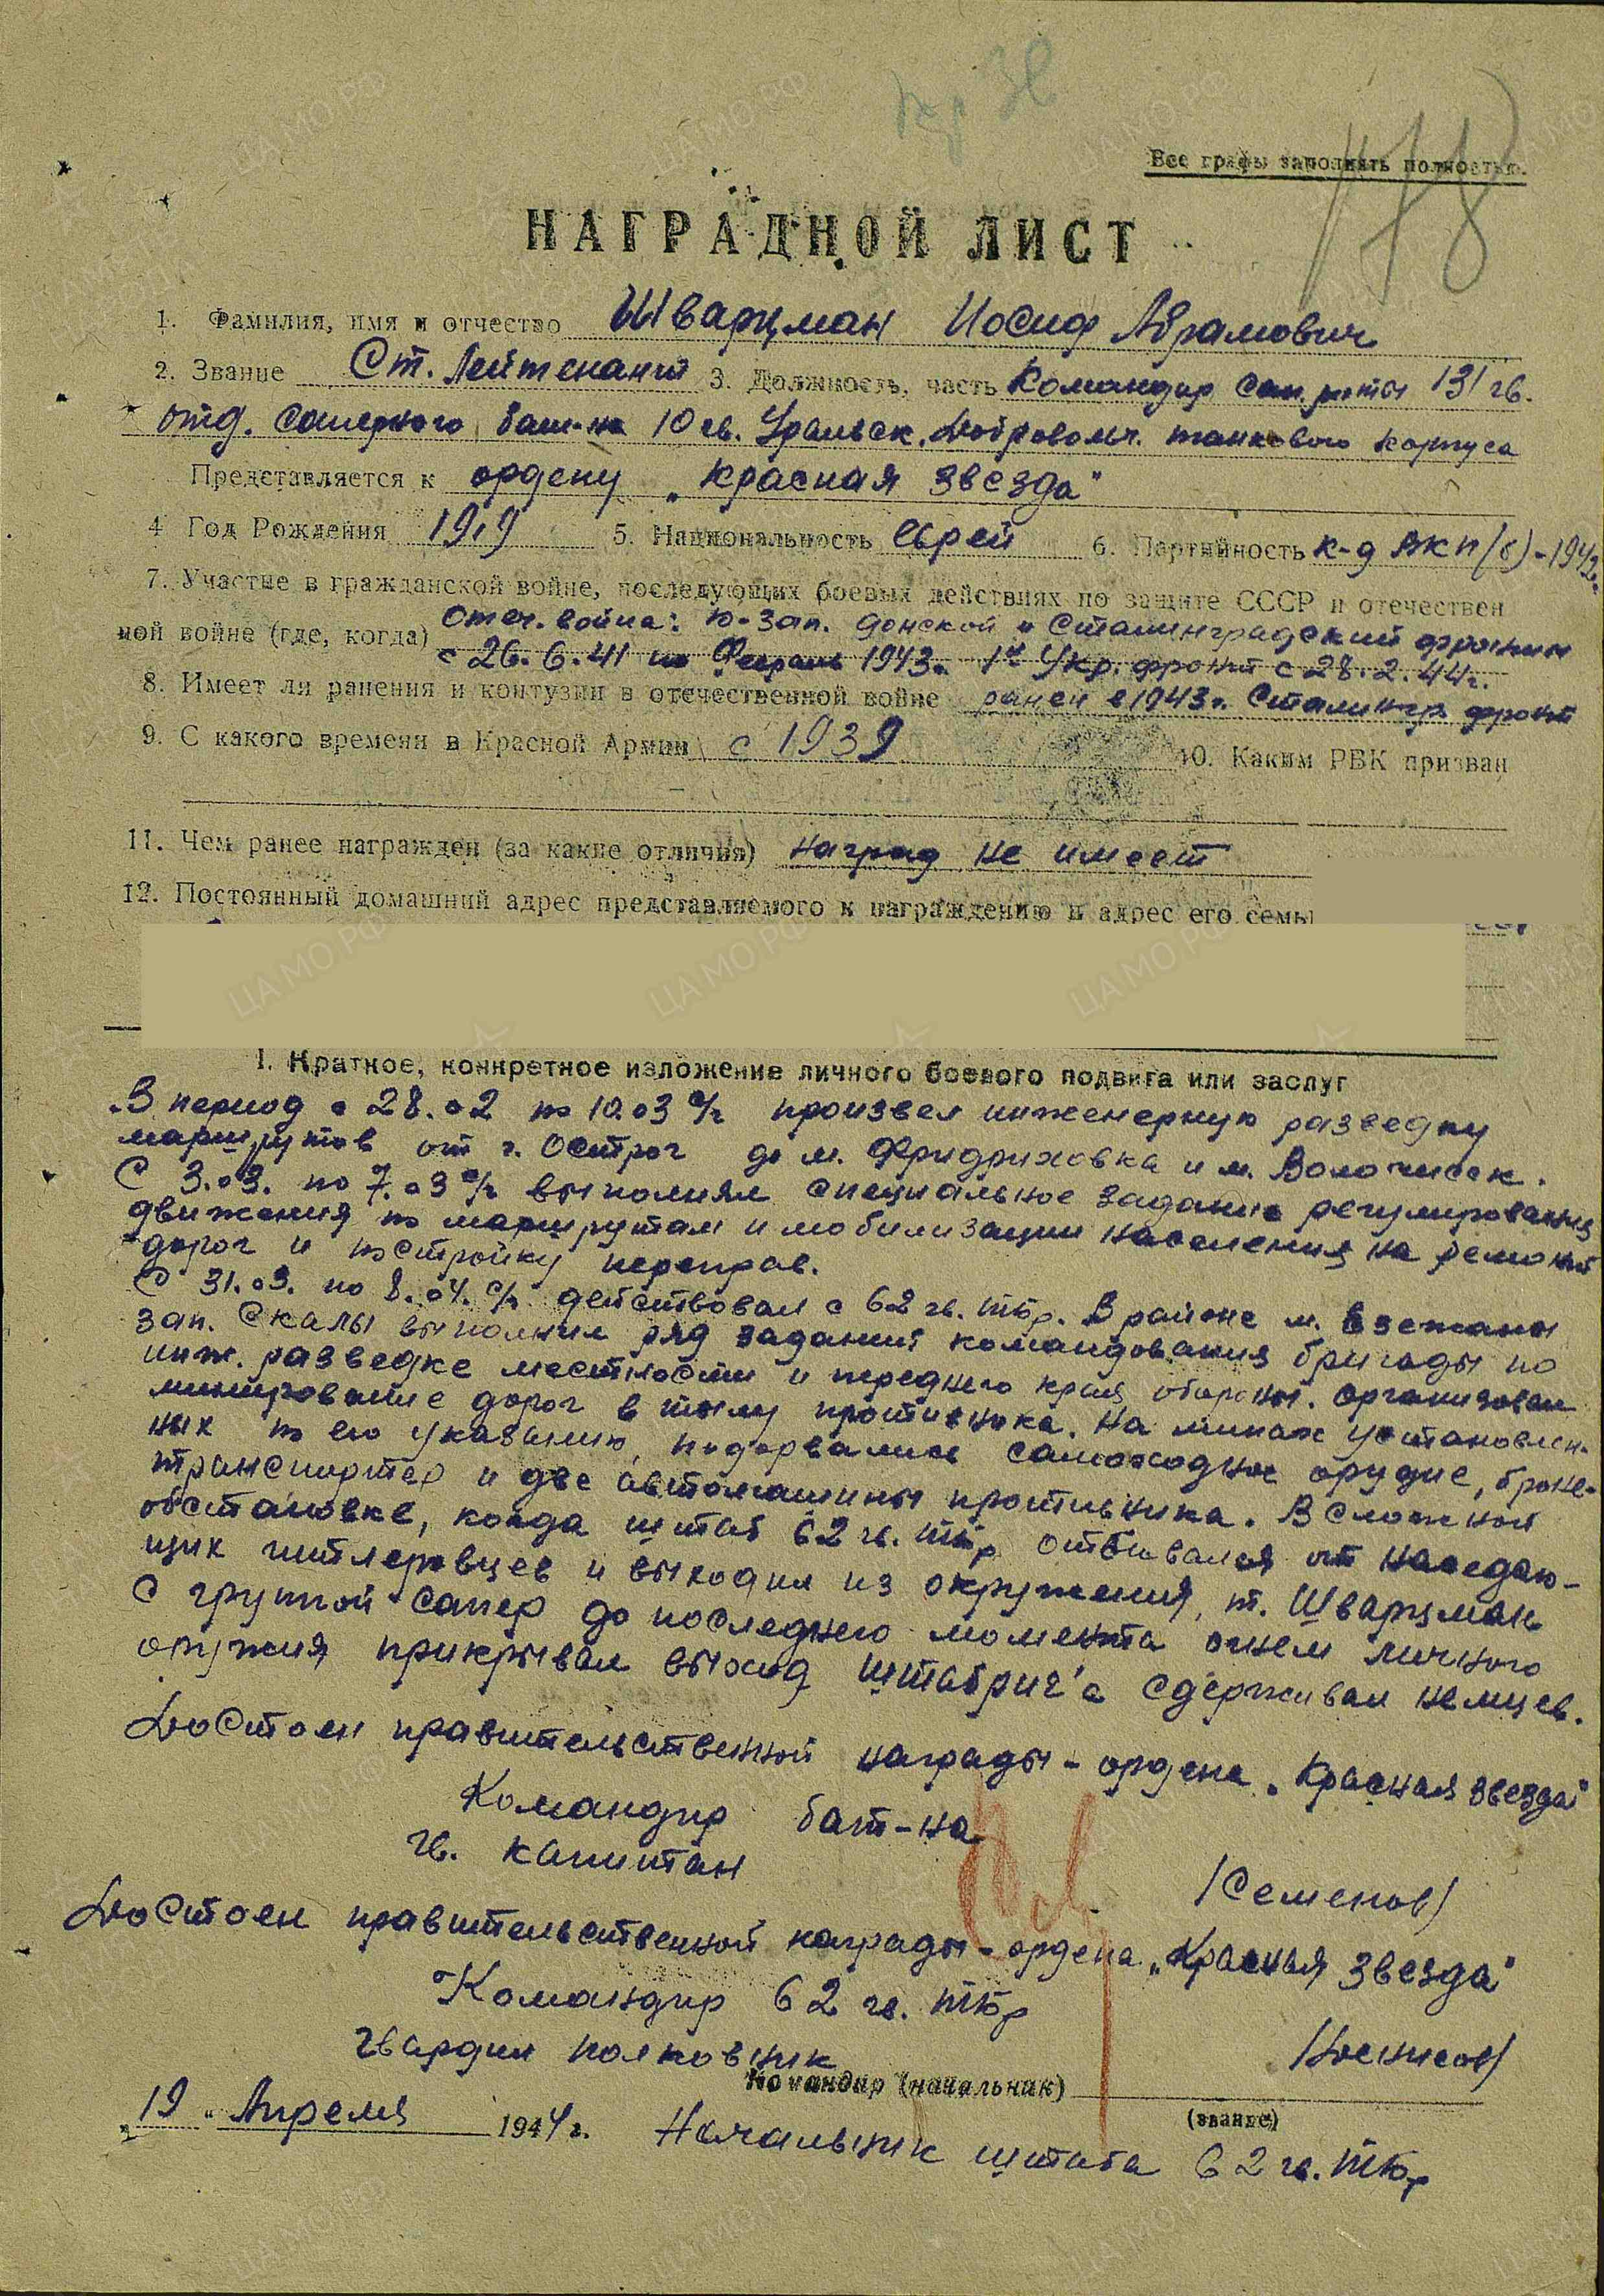 Все графы заполнять полностью.
178
НАГРАДНОЙ ЛИСТ
1. Фамилия, имя и отчество Шварцман Иосиф Абрамович
2. Звание Ст. Лейтенант 3. Должность, часть Командир сап. роты 131 гв.
отд. саперного бат-на 10 гв. Уральск. Добровольч. танкового корпуса
Представляется к ордену „Красная звезда"
4 Год Рождения 1919 5. Национальность еврей 6. Партийность к-д ВКП(б) - 1942г.
7. Участие в гражданской войне, последующих боевых действиях по защите СССР и отечествен
ной войне (где, когда) Отеч. война: Ю-Зап. Донской и Сталинградский фронты
с 26.6.41 по Февраль 1943г. 1й Укр. фронт с 28.2.44г.
8. Имеет ли ранения и контузии в отечественной войне ранен в 1943г. Сталингр фронт
9. С какого времени в Красной Армии с 1939 10. Каким РВК призван
11. Чем ранее награжден (за какие отличия) наград не имеет
12. Постоянный домашний адрес представляемого к награждению и адрес его семьи
I. Краткое, конкретное изложение личного боевого подвига или заслуг
В период с 28.02 по 10.03 с/г произвел инженерную разведку
маршрутов от г. Острог до м. Фридриховка и м. Волочиск.
С 3.03. по 7.03 с/г выполнял специальное задание регулирования
движения по маршрутам и мобилизации населения на ремонт
дорог и постройку переправ.
С 31.03. по 8.04. с/г действовал с 62 гв. тбр. В районе м.
зап. Скалы выполнил ряд заданий командования бригады по
инж. разведке местности и переднего края обороны. организовал
минирование дорог в тылу противника. На минах установлен-
ных по его указанию, подорвались самоходное орудие, броне-
транспортер и две автомашины противника. В сложной
обстановке, когда штаб 62 гв. тбр отбивался от наседаю-
щих гитлеровцев и выходил из окружения, т. Шварцман
с группой сапер до последнего момента огнем личного
оружия прикрывал выход штабриг'а сдерживал немцев.
Достоен правительственной награды - ордена „Красная звезда"
Командир бат-на
гв. капитан
/Семенов/
Достоен правительственной награды - ордена „Красная звезда"
Командир 62 гв. тбр
гвардии полковник
/Денисов/
Командир (начальник)
(звание)
„19" Апреля 1944г. Начальник штаба 62 гв. тбр
ЦА МО РФ